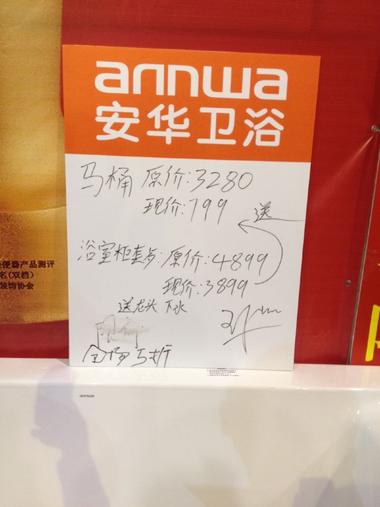 annwa
安华卫浴
马桶 原价:3280
现价:799 送
浴室柜套 原价:4899
现价:3899
送龙头 下水
全场5折
便器产品测评
名(双档)
装饰协会
annwa